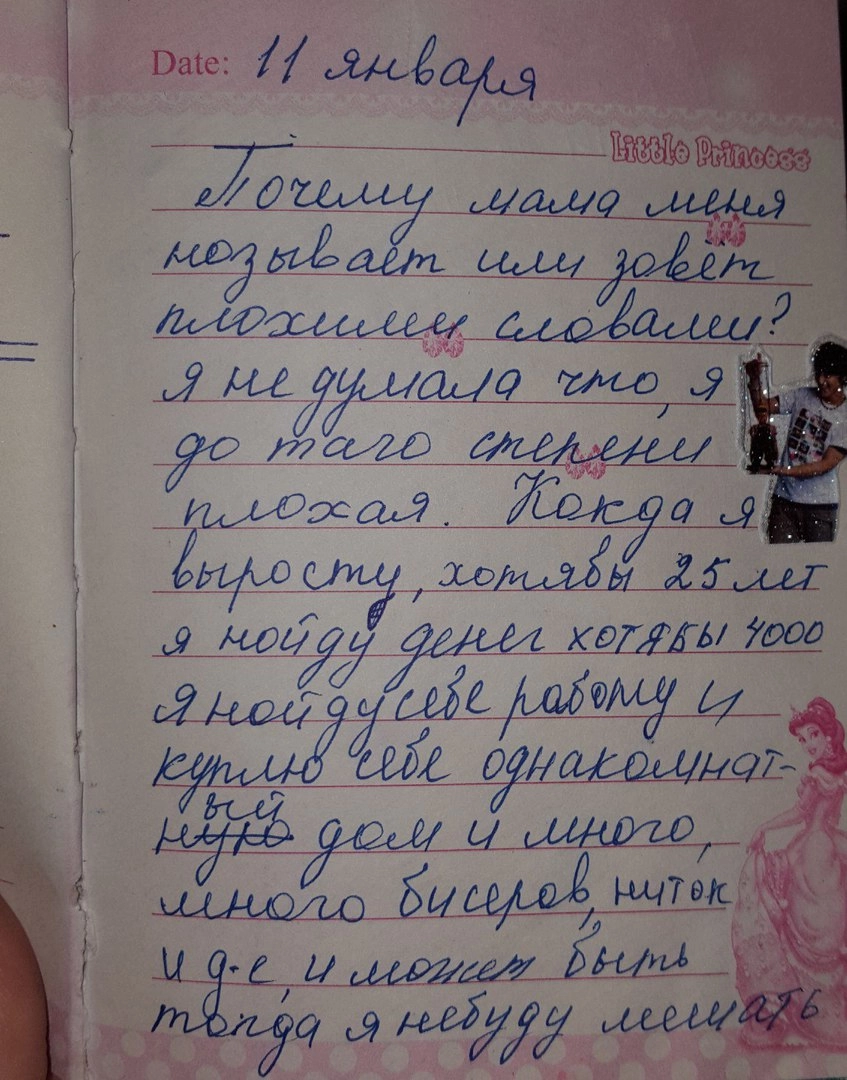 Date: 11 января
Little Princess
Почему мама меня
называет или зовёт
плохими словами?
я не думала что, я
до таго степени
плохая. Кокда я
выросту, хотябы 25 лет
я нойду денег хотябы 4000
Я нойду себе работу и
куплю себе однакомнат-
ный дом и много,
много бисеров, ниток
и д-е, и может быть
тогда я небуду мешать